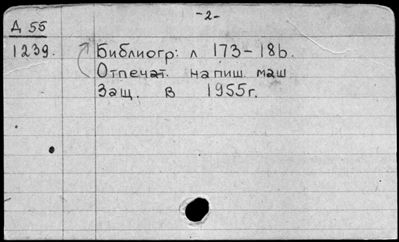 -2-
Д 55
1239.
Библиогр: л 173-186.
Отпечат. на пиш. маш
Защ. в 1955г.